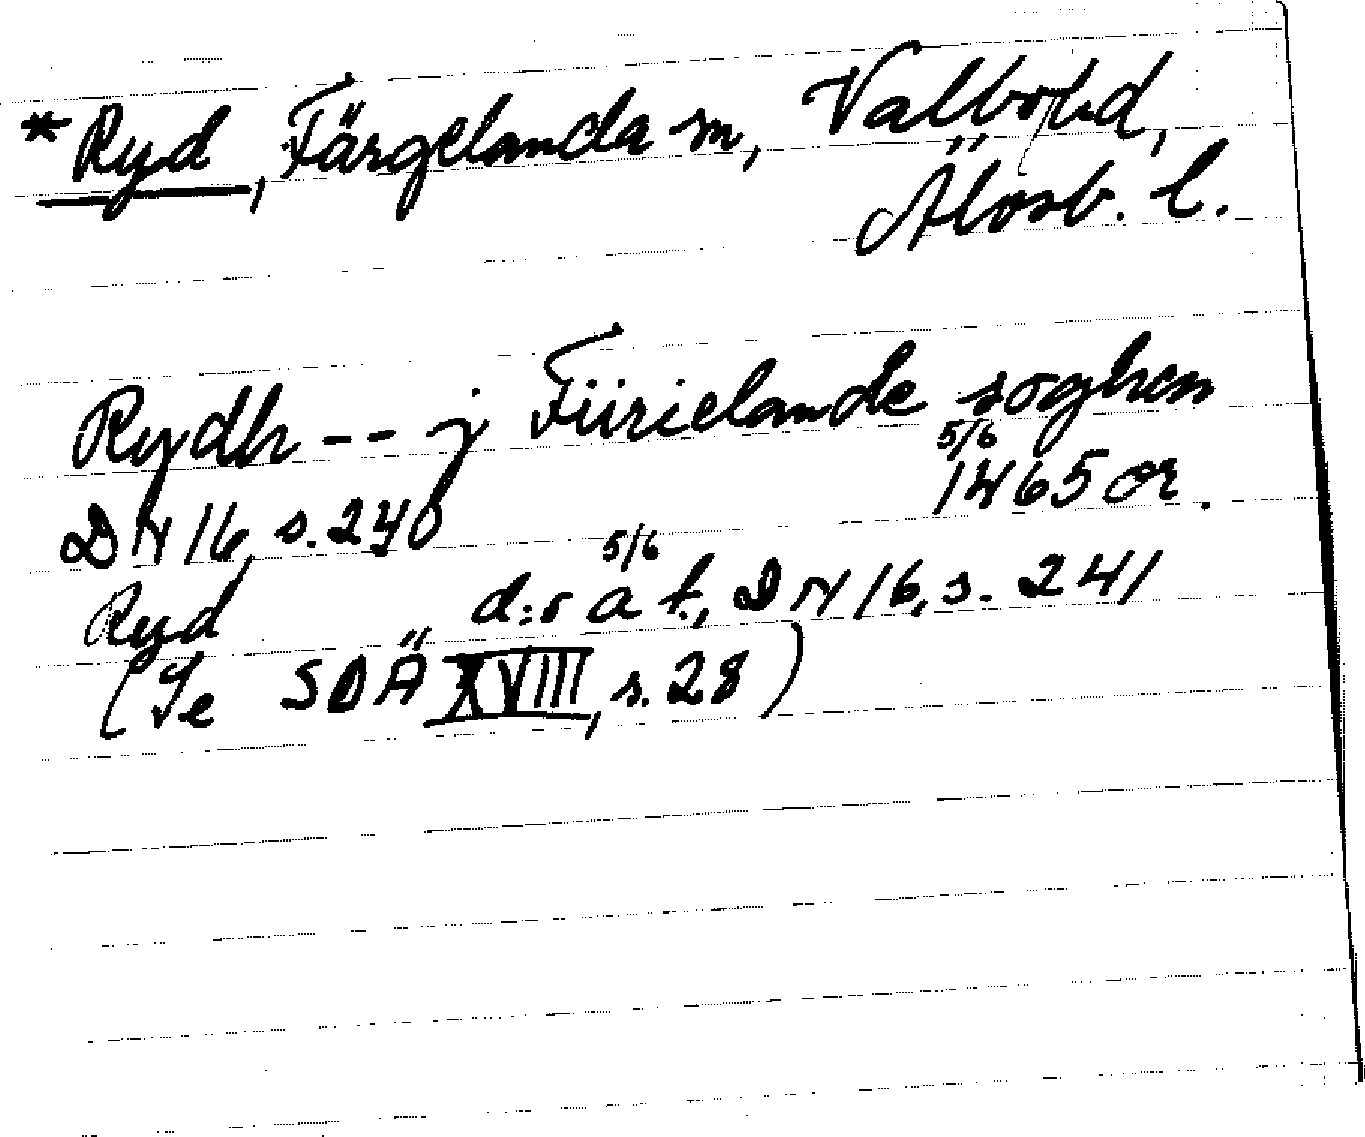 *Ryd, Färgelanda sn, Valbo hd,
Älvsb. l.
Rydhr -- j Fiirielande soghen
5/6
1465 or.
DN 16, s. 240
5/6
Ryd d:o a t., DN 16, s. 241
(Se SOÄ XVIII, s. 28)